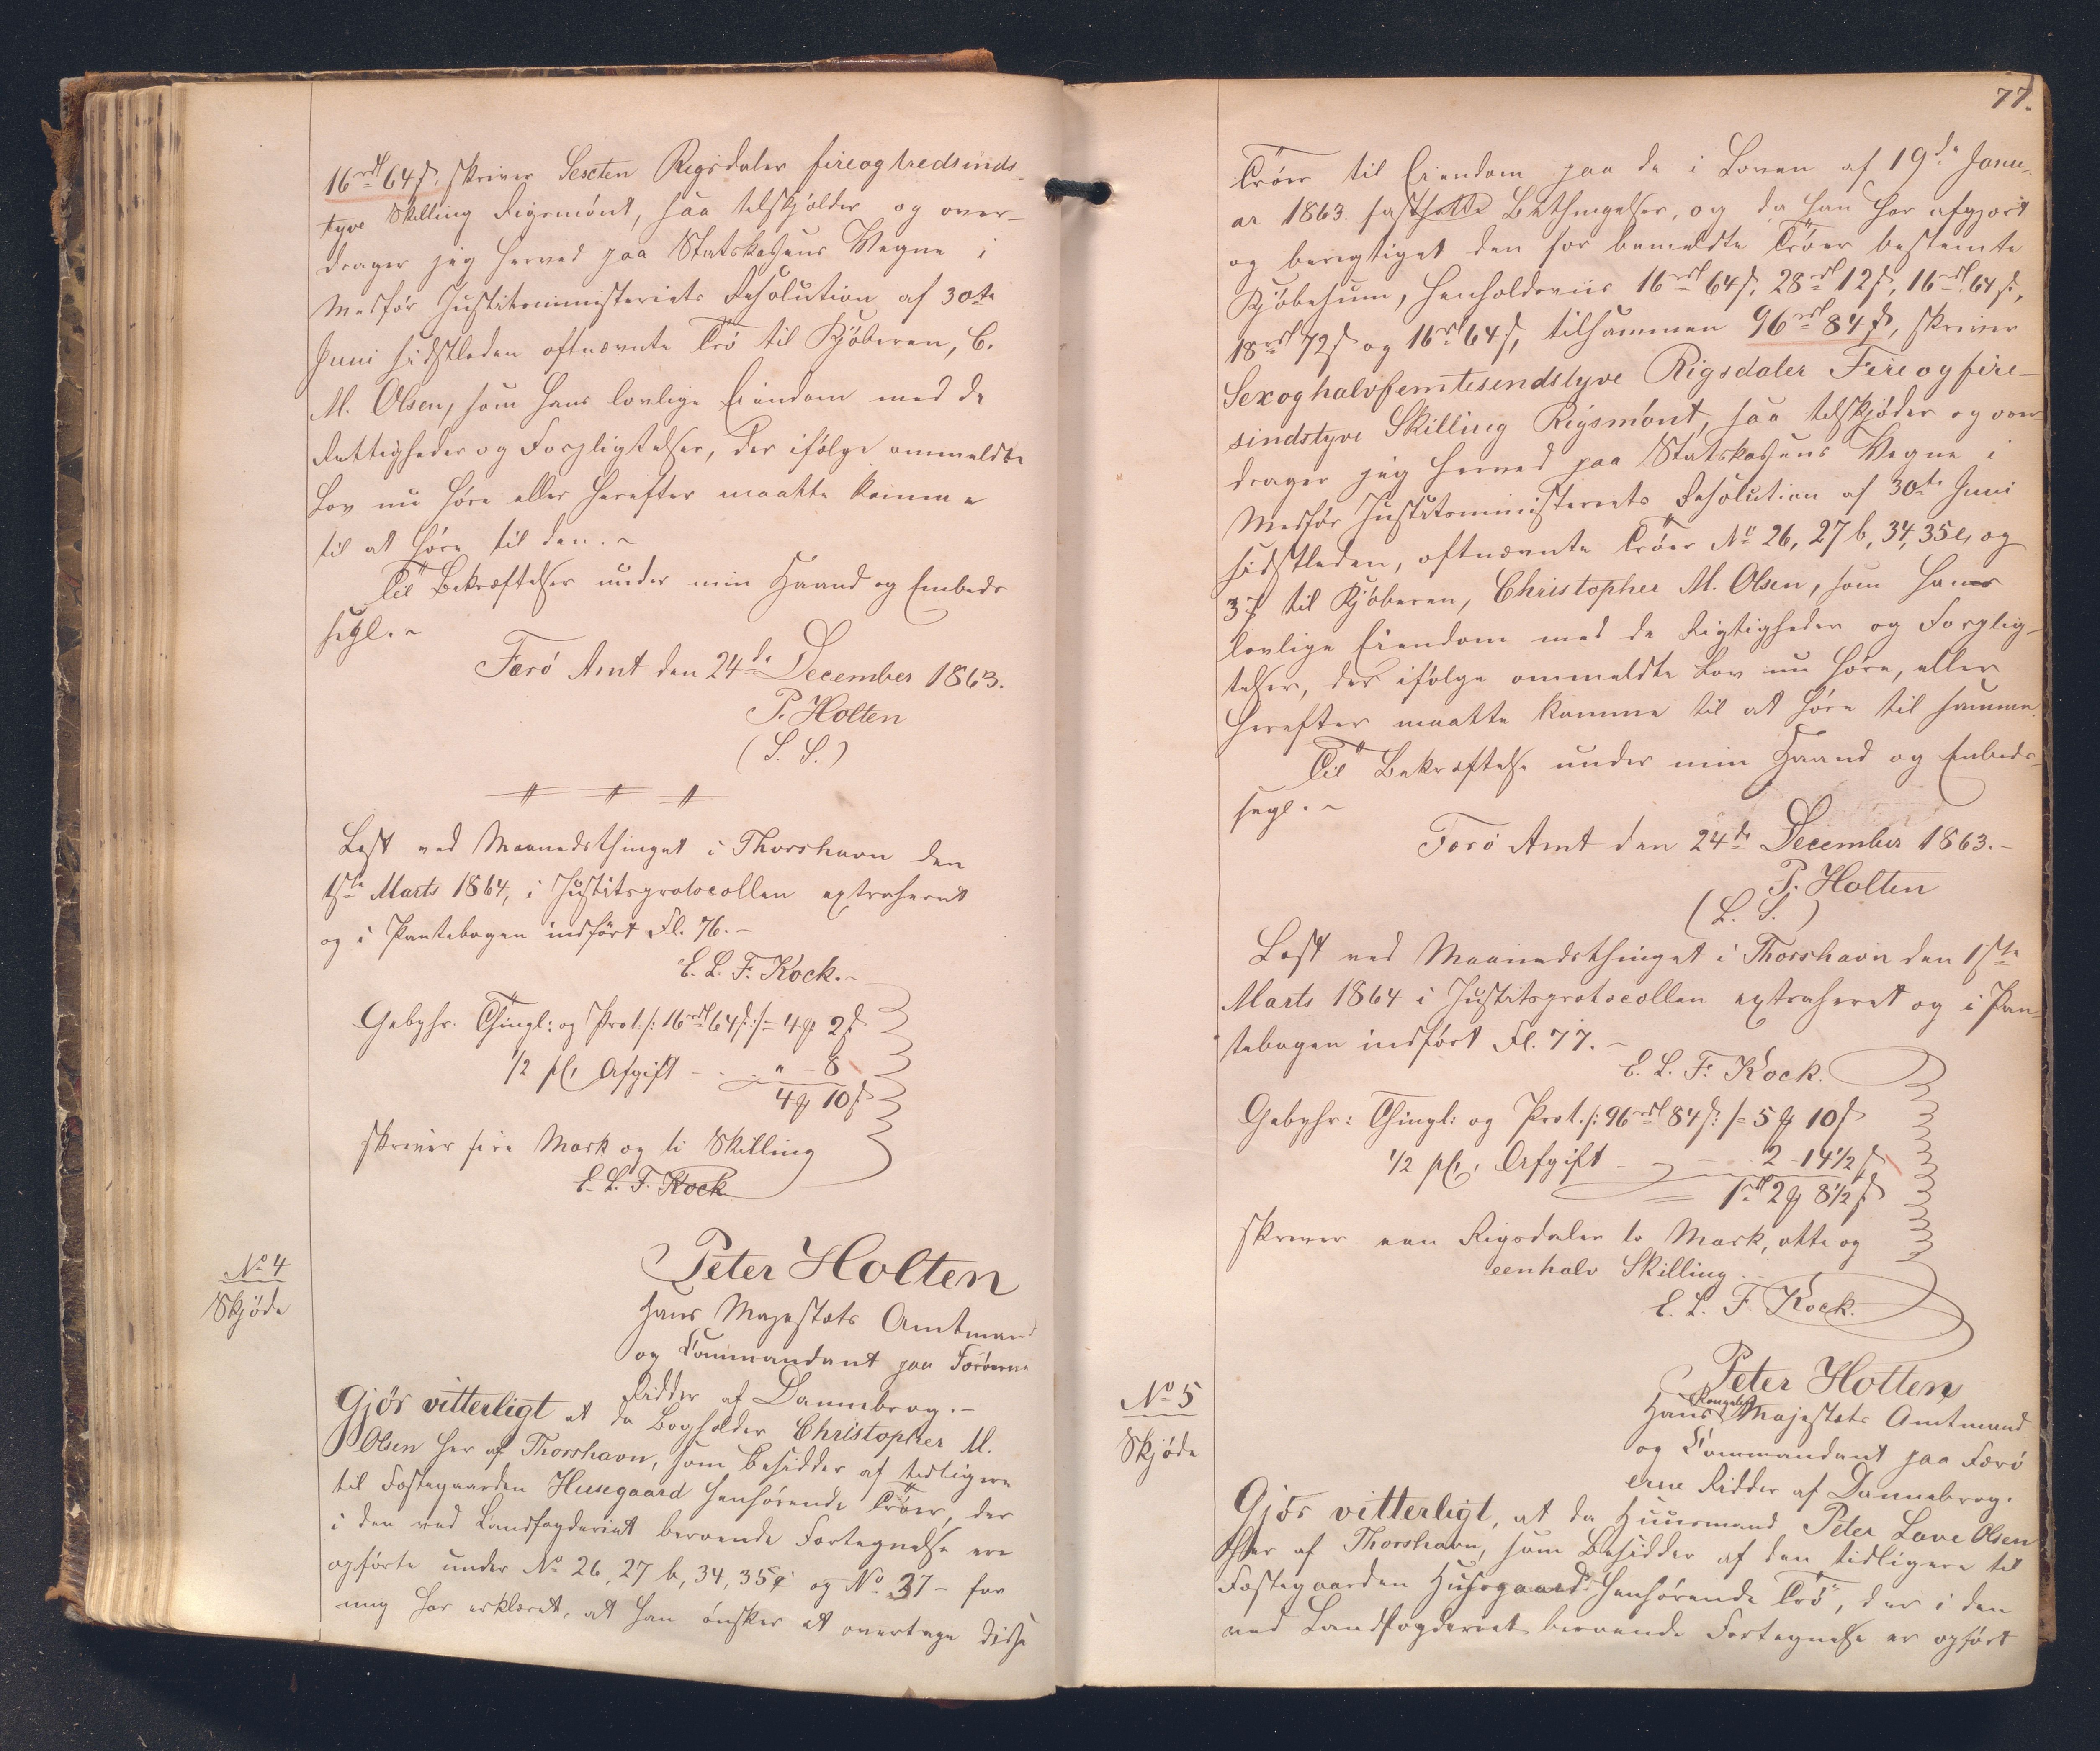 16rd 64 s, skriver Sexten Rigsdaler fireogtredsinds-
tyve Skilling Rigsmønt, saa tilskjøder og over-
drager jeg herved paa Statskassens Vegne i
Medfør Justitsministeriets Resolution af 30te
Juni sidstleden oftnævnte Trø til Kjøberen, C.
M. Olsen, som hans lovlige Eiendom med de
Rettigheder og Forpligtelser, der ifølge ommeldte
Lov nu høre eller herefter maatte komme
til at høre til den.~
Til Bekræftelse under min Haand og Embeds
segl.~
Færø Amt den 24de December 1863.
P. Holten
(L. S.)
Læst ved Maanedsthinget i Thorshavn den
1ste Marts 1864, i Justitsprotocollen extraheret
og i Pantebogen indført Fl. 76.-
E. L. F. Kock.~
Gebyhr. Thingl: og Prot. /: 16rd 64 s :/ = 4 ₻ 2 s
1/2 pCt Afgift - . . " - 8
4 ₻ 10 s
skriver fire Mark og ti Skilling
E. L. F. Kock
No 4
Skjøde
Peter Holten
Hans Majestæts Amtmand
og Commandant paa Færøerne
Ridder af Dannebrog.-
Gjör vitterligt at da Bogholder Christopher M.
Olsen her af Thorshavn, som Besidder af tidligere
til Fæstegaarden Husegaard henhørende Trøer, der
i den ved Landfogderiet beroende Fortegnelse ere
opførte under No 26, 27 b, 34, 35e og No 37 - for
mig har erklæret, at han ønsker at overtage disse
77.
Trøer til Eiendom paa de i Loven af 19de Janu-
ar 1863 fastsatte Bethingelser, og da han har afgjort
og berigtiget den for bemeldte Trøer bestemte
Kjøbesum, henholdsviis 16rd 64 s, 28rd 12 s, 16rd 64 s,
18rd 72 s og 16rd 64 s, tilsammen 96rd 84 s, skriver
Sexoghalvfemtesindstyve Rigsdaler Fireogfire-
sindstyve Skilling Rigsmönt, saa tilskjøder og over-
drager jeg herved paa Statskassens Vegne i
Medfør Justitsministeriets Resolution af 30te Juni
sidstleden, oftnævnte Trøer No 26, 27 b, 34, 35 e, og
37 til Kjøberen, Christopher M. Olsen, som hans
lovlige Eiendom med de Rigtigheder og Forplig-
telser, der ifølge ommeldte Lov nu høre, eller
herefter maatte komme til at høre til samme.
Til Bekræftelse under min Haand og Embeds-
segl.~
Færö Amt den 24de December 1863.-
P. Holten
(L. S.)
Læst ved Maanedsthinget i Thorshavn den 1ste
Marts 1864 i Justitsprotocollen extraheret og i Pan-
tebogen indført Fl. 77.-
E. L. F. Kock.
Gebyhr: Thingl: og Prot. /: 96rd 84 s :/ = 5 ₻ 10 s
1/2 pCt. Afgift - - 2 - 14 1/2 s
= 1rd 2 ₻ 8 1/2 s
skriver een Rigsdaler to Mark, otte og
eenhalv Skilling.
E. L. F. Kock.
No 5
Skjøde
Peter Holten
Hans Kongelige Majestæts Amtmand
og Commandant paa Færö
erne Ridder af Dannebrog.
Gjör vitterligt, at da Huusmand Peter Lave Olsen
her af Thorshavn, som Besidder af den tidligere til
Fæstegaarden Husegaard henhørende Trö, der i den
ved Landfogderiet beroende Fortegnelse er opført